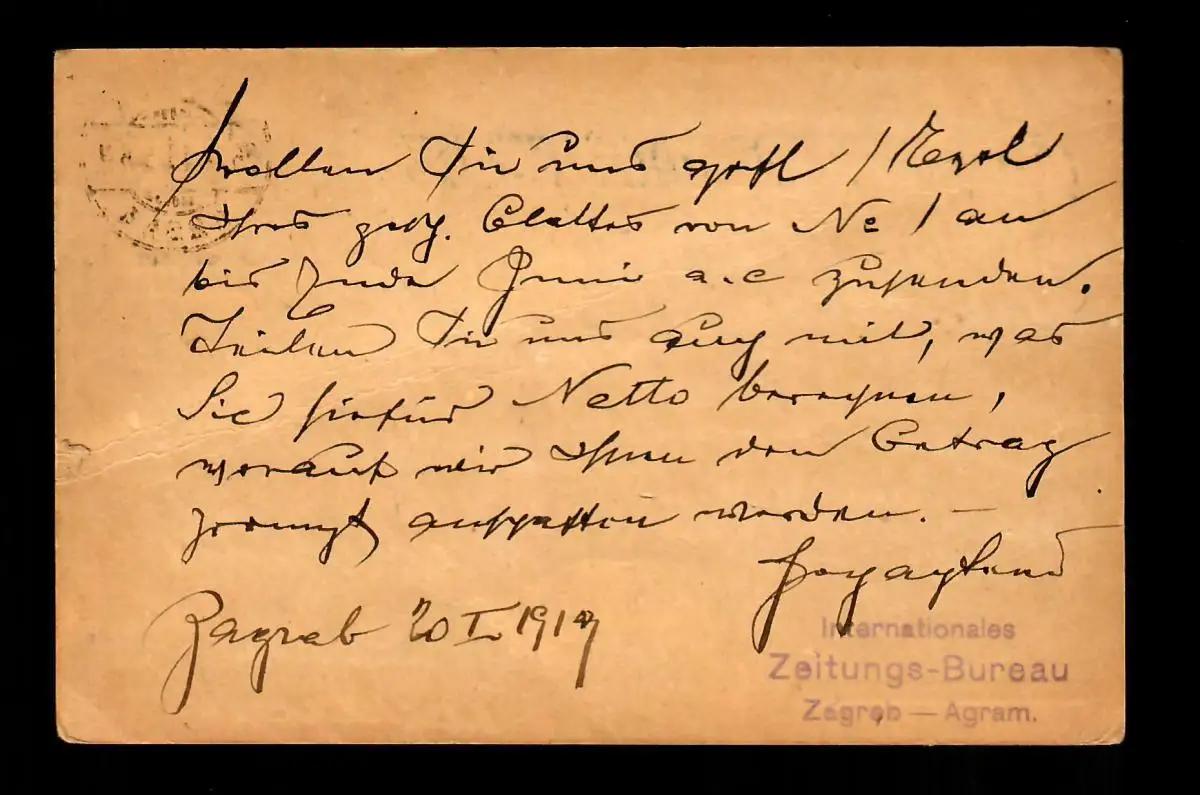 Wollen Sie uns gefl 1 Expl
Ihres gesch. Blattes von No 1 an
bis Ende Juni a.c zusenden.
Teilen Sie uns auch mit, was
Sie hiefür Netto berechnen,
worauf wir Ihnen den Betrag
prompt
werden. –
Hochachtend
Zagreb 20 I. 1917
Internationales
Zeitungs-Bureau
Zagreb — Agram.